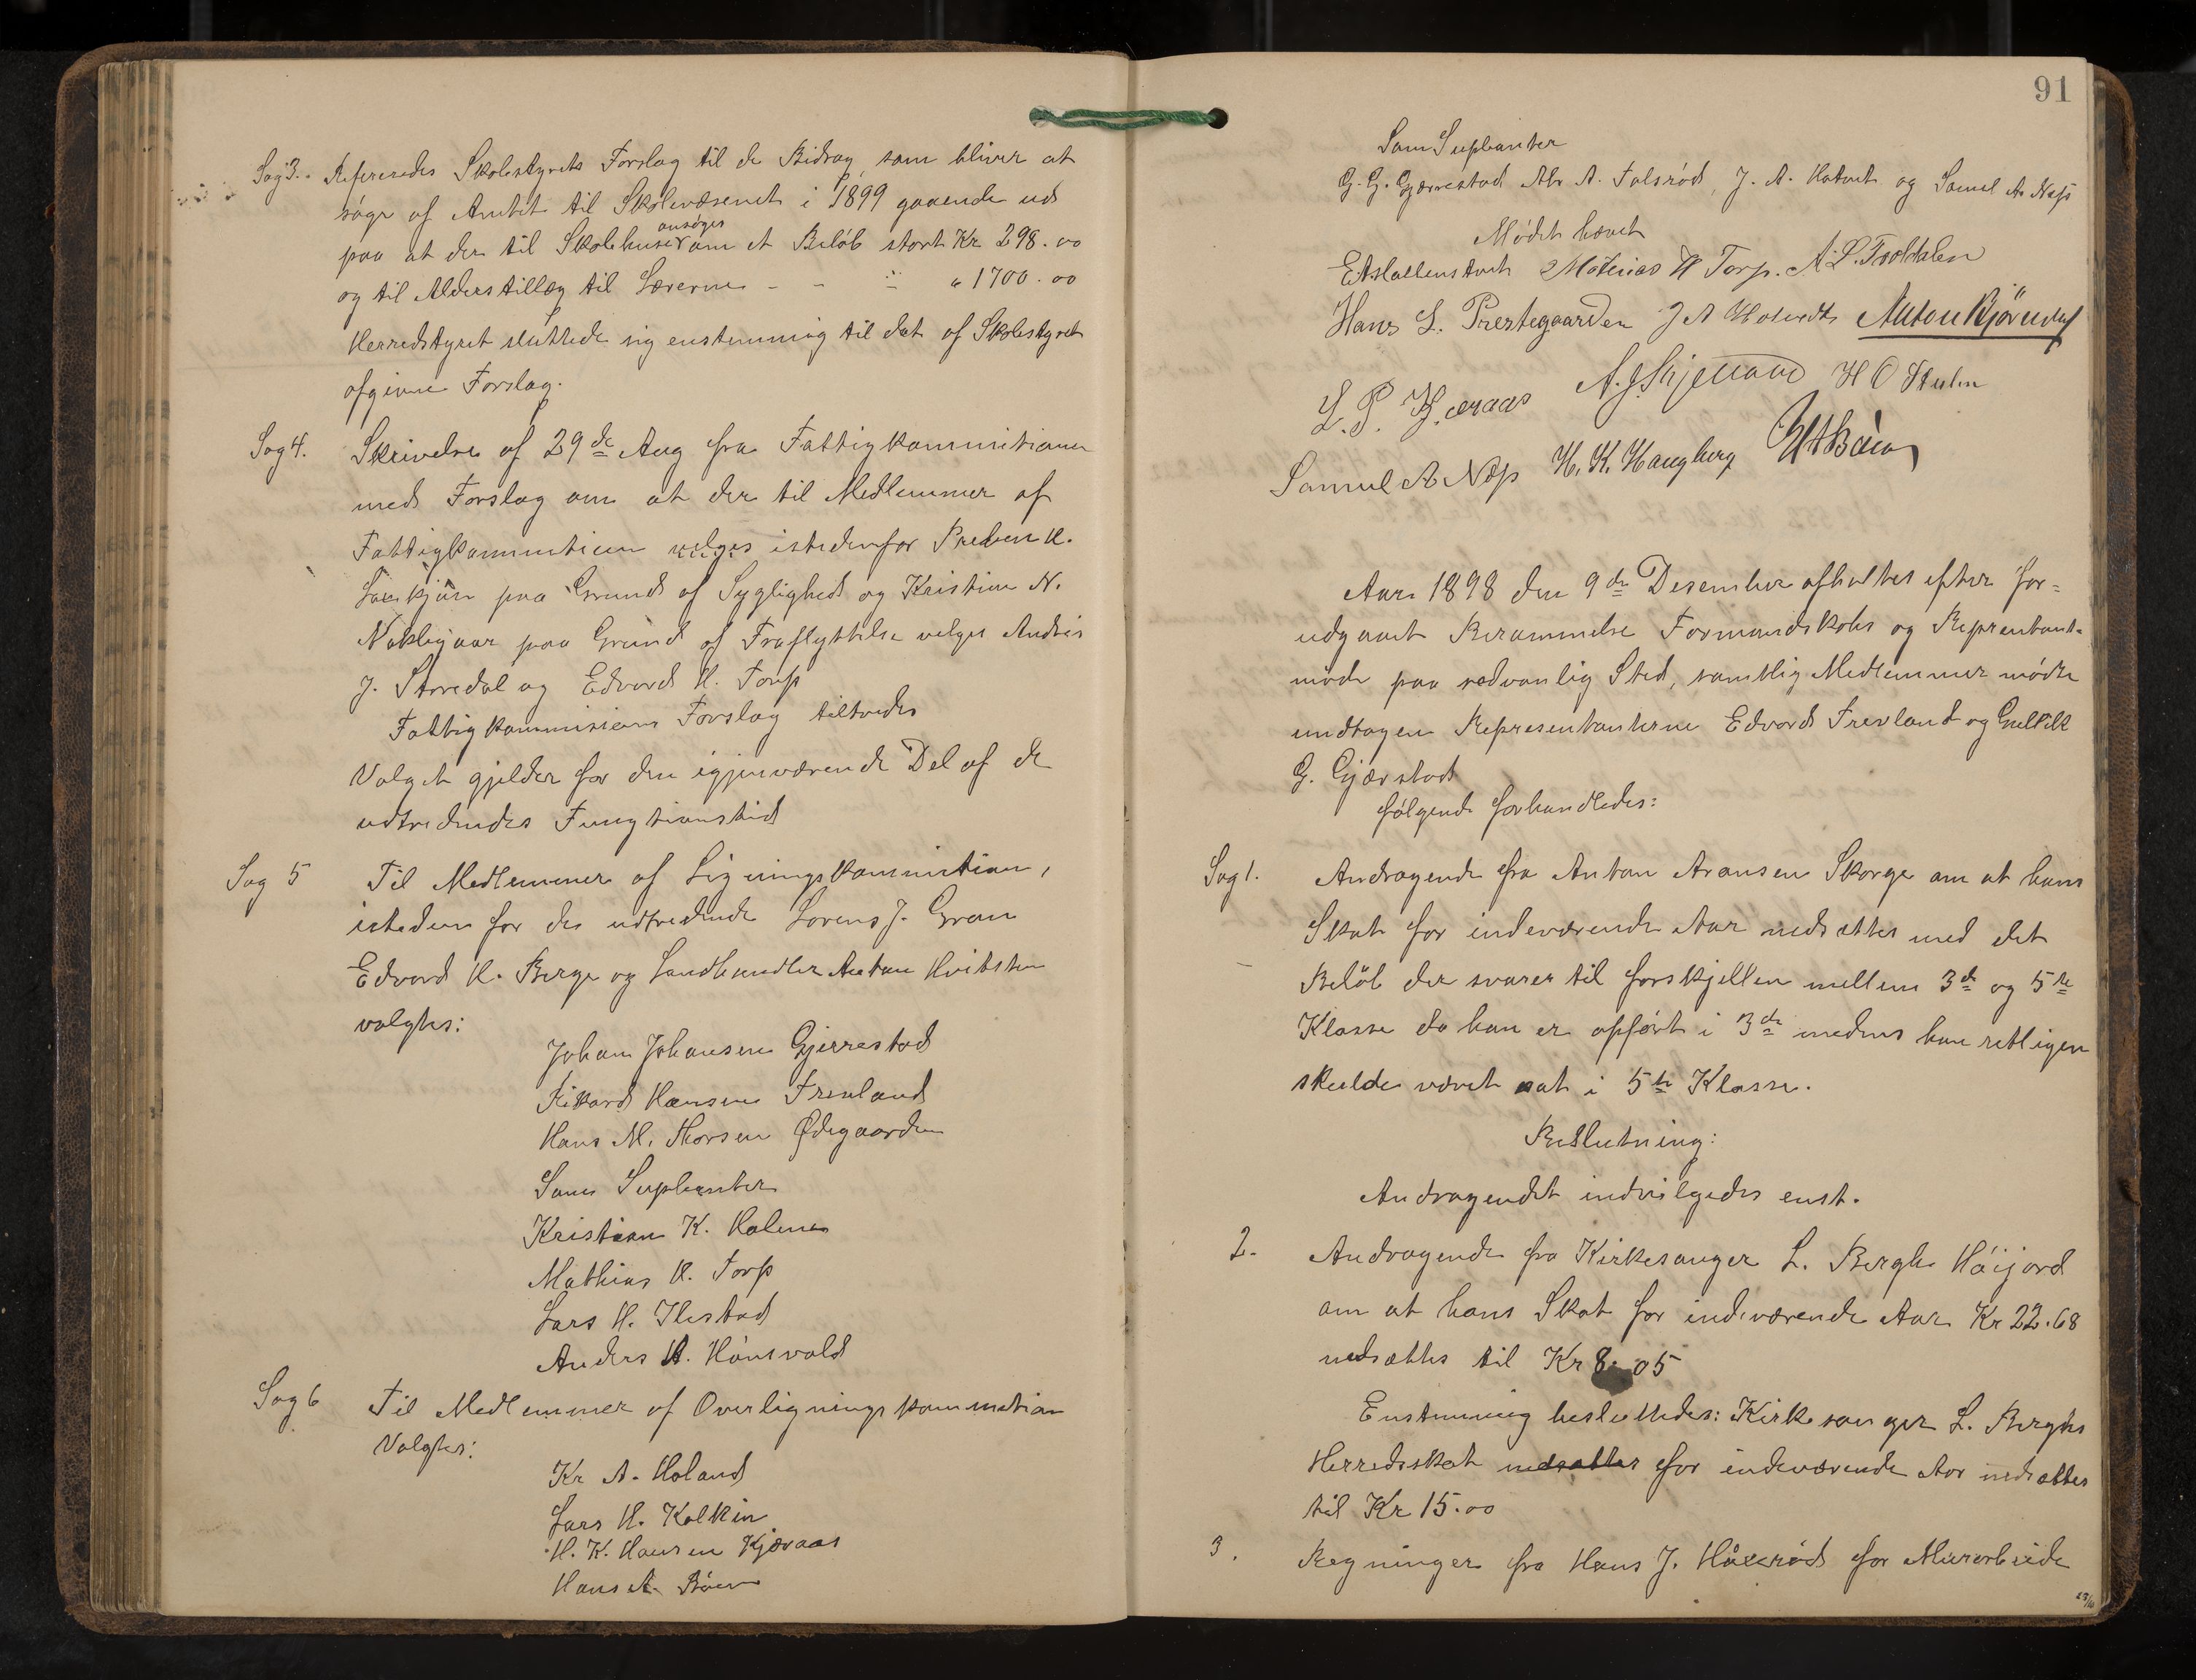 Sag 3. Refereredes Skolestyrets Forslag til de Bidrag, som bliver at
søge af Amtet til Skolevæsenet i 1899 gaaende ud
ansøges
paa at der til Skolehuserom et Beløb stort Kr 298.00
og til Alderstillæg til Lærerne - - " " 1700.00
Herredstyret sluttede sig enstemmig til det af Skolestyret
afgivne Forslag.
Sag 4. Skrivelse af 29de Aug fra Fattigkommitionen
med Forslag om at der til Medlemmer af
Fattigkommitionen velges istedenfor Preben H.
paa Grund af Syglighed og Kristian N.
paa Grund af Fraflyttelse velges Andreas
J. Storedal og Edvard H. Torp
Fattigkommisions Forslag tiltredes
Valget gjelder for den igjenværende Del af de
udtredendes Fungtionstid
Sag 5 Til Medlemmer af Ligningskommitian,
isteden for de udtredende Lorens J. Gran
Edvard H. Berge og Landhandler Anton Hvitsten
valgtes:
Johan Johansen Gjerrestad
Rikard Hansen Trevland
Hans M. Thorsen Ødegaarden
Som Suplanter
Kristian K. Holmen
Mathias H. Torp
Lars H. Ilestad
Anders A. Hånsvald
Sag 6 Til Medlemmer af Overligningskommition
Valgtes:
Kr A. Holand
Lars H. Kolkin
H. K. Hansen Kjæraas
Hans A. Bøen
91
Som Suplanter
G. G. Gjærrestad Abr A. Falsrød, J. A. Hotvet og Samuel A Næss
Mødet hævet
Mathias H Torp. A. L. Trollsalen
Hans L. Prestegaarden J A Hotvedt Anton Bjørndal
L. P. Kjæraas A. J. Skjeraae H O Stulen
Samuel A Næss H. K. Haugberg H A Bøen
Aar 1898 den 9de Desember afholtes efter for-
udgaaet Berammelse Formandskabs og Reprentant-
møde paa sedvanlig Sted, samtlig Medlemmer mødte
undtagen Representanterne Edvard Trevland og Gultik
G. Gjærstad
følgende forhandledes:
Sag 1. Andragende fra Anton Aronsen Skorge om at hans
Skat for indeværende Aar nedsættes med det
Beløb der svarer til forskjellen mellem 3de og 5te
Klasse da han er opført i 3de medens han retligen
skulde været sat i 5te Klasse.
Beslutning:
Andragendet indvilgedes enst.
2. Andragende fra Kirkesanger L. Bergh Høijord
om at hans Skat for indeværende Aar Kr 22.68
nedsættes til Kr 8.05
Enstemmig besluttedes: Kirkesanger L. Berghs
Herredsskat nedsættes for indeværende Aar nedsættes
til Kr 15.00
3. Regninger fra Hans J. Håserød for Murarbeide